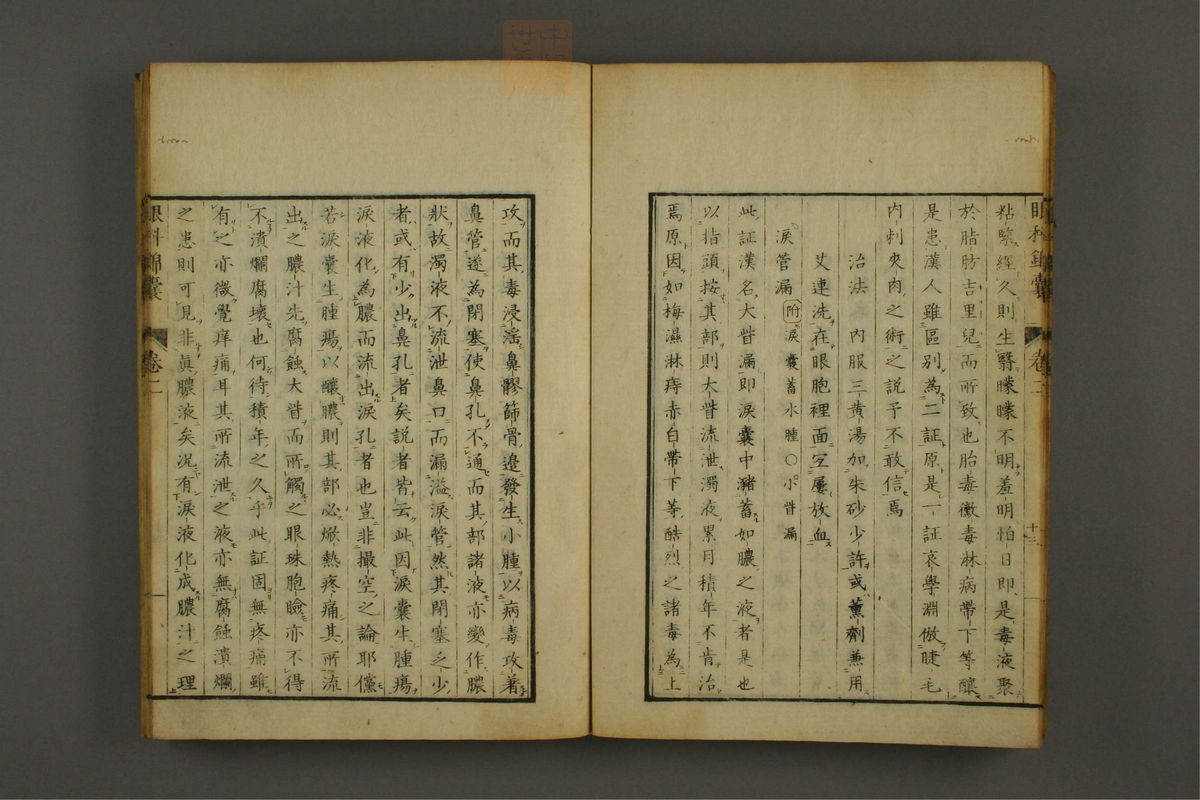 眼科錦囊 卷二 十三
粘緊經久則生翳矇矇不明羞明怕日即是毒液聚
於脂肪吉里兒而所致也胎毒黴毒淋病帶下等釀
是患漢人雖區別為二証原是一証哀學淵倣睫毛
內刺夾肉之術之說予不敢信焉
治法 內服三黃湯加朱砂少許或薰劑兼用
艾連洗在眼胞裡面宜屢放血
淚管漏 附淚囊蓄水腫〇小眥漏
此証漢名大眥漏即淚囊中瀦蓄如膿之液者是也
以指頭按其部則大眥流泄濁液累月積年不肯治
焉原因如梅濕淋痔赤白帶下等酷烈之諸毒為上
攻而其毒浸淫鼻髎篩骨邊發生小腫以病毒攻著
鼻管遂為閉塞使鼻孔不通而其部諸液亦變作膿
狀故濁液不流泄鼻口而漏溢淚管然其閉塞乏少
者或有少出鼻孔者矣說者皆云此因淚囊生腫瘍
淚液化為膿而流出淚孔者也豈非撮空之論耶儻
若淚囊生腫瘍以釀膿則其部必焮熱疼痛其所流
出之膿汁先腐蝕大眥而所觸之眼珠胞瞼亦不得
不潰爛腐壞也何待積年之久乎此証固無疼痛雖
有之亦微覺痒痛耳其所流泄之液亦無腐蝕潰爛
之患則可見非眞膿液矣況有淚液化成膿汁之理
眼科錦囊 卷二